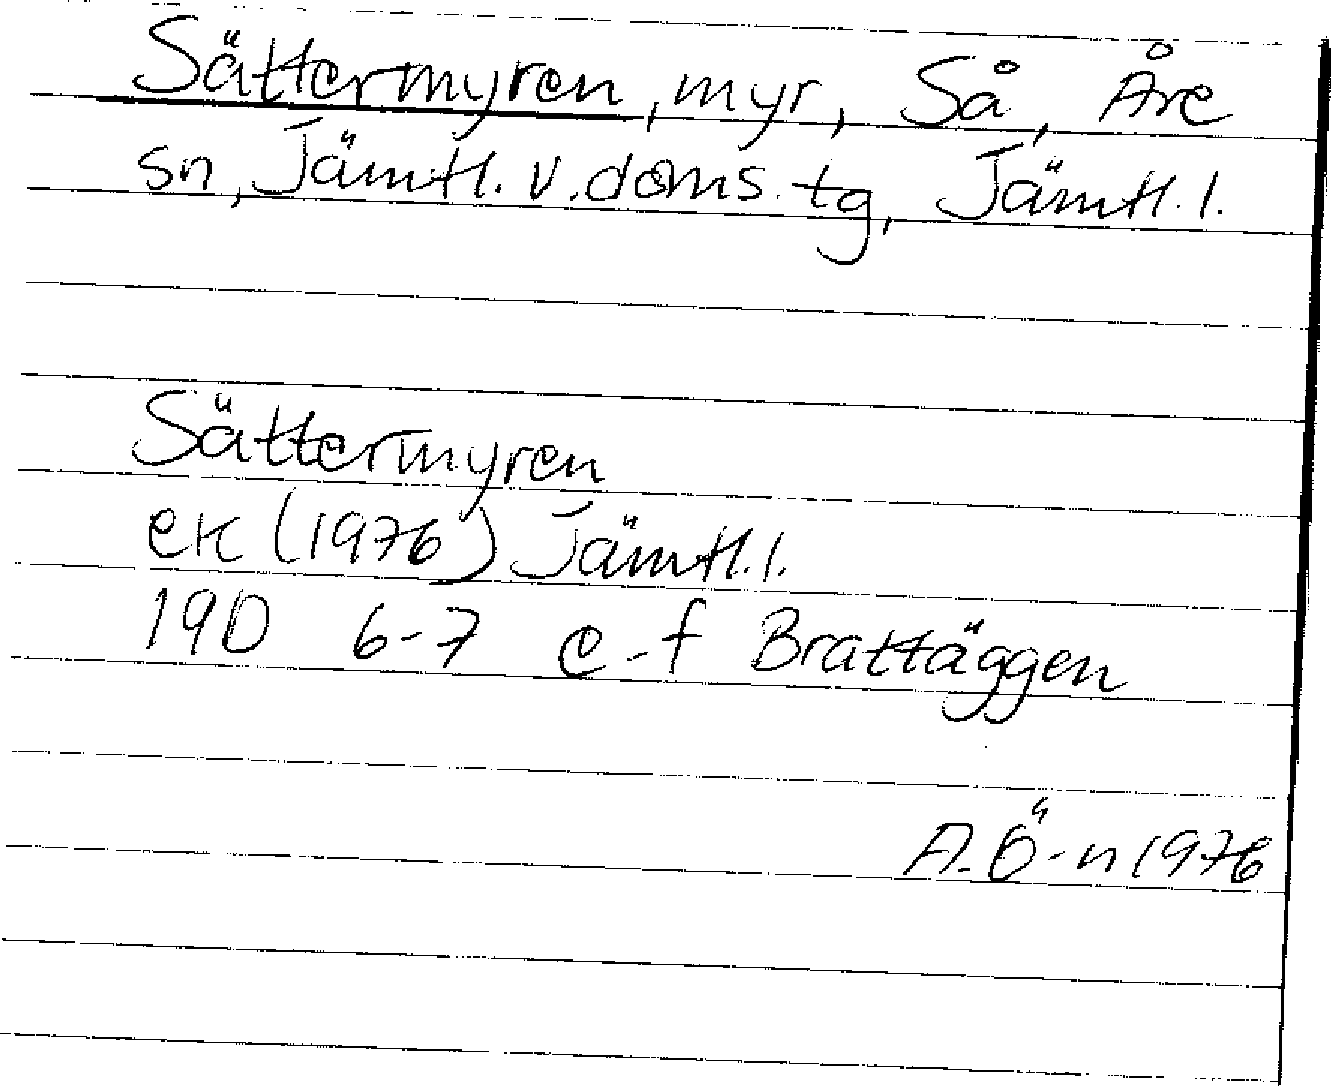 Sättermyren, myr, Så, Åre
sn, Jämtl. v. doms. tg, Jämtl. l.
Sättermyren
ek (1976) Jämtl. l.
19D 6-7 e-f Brattäggen
A. Ö-n 1976